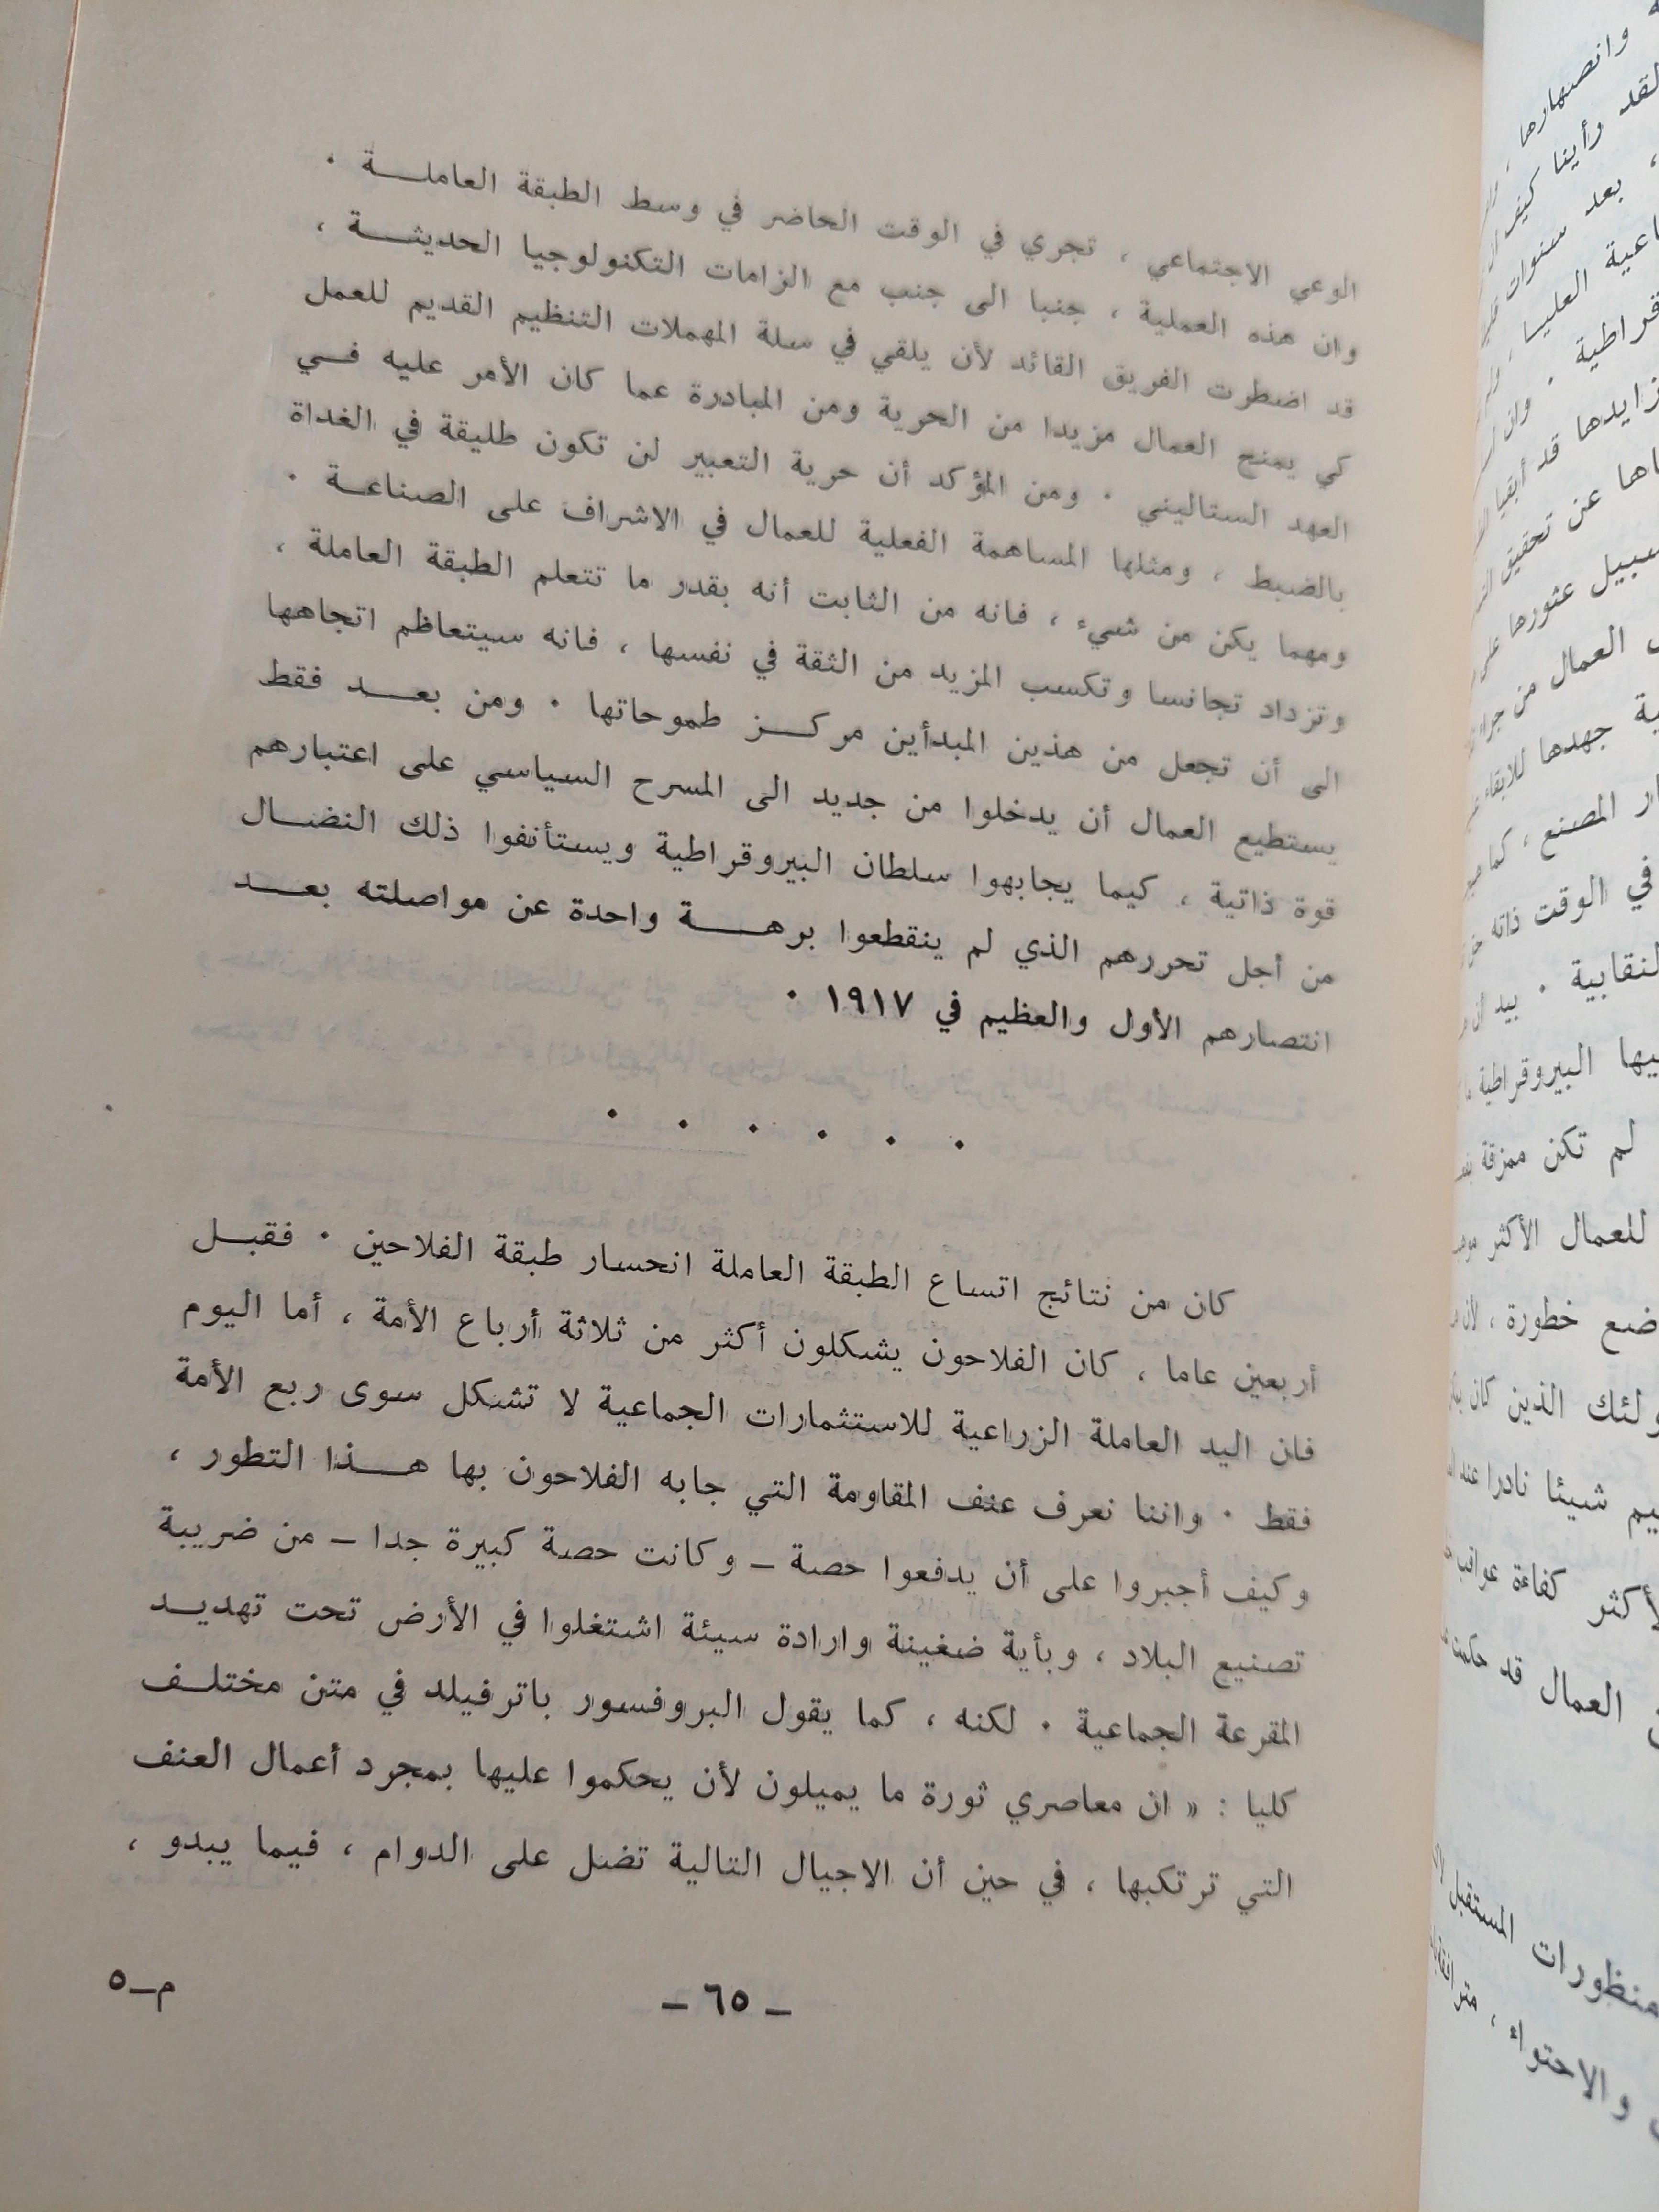 الوعي الاجتماعي ، تجري في الوقت الحاضر في وسط الطبقة العاملـــة .
وان هذه العملية ، جنبا الى جنب مع الزامات التكنولوجيا الحديثـــة ،
قد اضطرت الفريق القائد لأن يلقي في سلة المهملات التنظيم القديم للعمل
كي يمنح العمال مزيدا من الحرية ومن المبادرة عما كان الأمر عليه فـــي
العهد الستاليني . ومن المؤكد أن حرية التعبير لن تكون طليقة في الغداة
بالضبط ، ومثلها المساهمة الفعلية للعمال في الاشراف على الصناعـــة .
ومهما يكن من شيء ، فانه من الثابت أنه بقدر ما تتعلم الطبقة العاملة ،
وتزداد تجانسا وتكسب المزيد من الثقة في نفسها ، فانه سيتعاظم اتجاهها
الى أن تجعل من هذين المبدأين مركـــز طموحاتها . ومن بعـــد فقط
يستطيع العمال أن يدخلوا من جديد الى المسرح السياسي على اعتبارهم
قوة ذاتية ، كيما يجابهوا سلطان البيروقراطية ويستأنفوا ذلك النضـــال
من أجل تحررهم الذي لم ينقطعوا برهـــة واحدة عن مواصلته بعـــد
انتصارهم الأول والعظيم في ١٩١٧ .
. . . . . .
كان من نتائج اتساع الطبقة العاملة انحسار طبقة الفلاحين . فقبـــل
أربعين عاما ، كان الفلاحون يشكلون أكثر من ثلاثة أرباع الأمة ، أما اليوم
فان اليد العاملة الزراعية للاستثمارات الجماعية لا تشكل سوى ربع الأمة
فقط . واننا نعرف عنف المقاومة التي جابه الفلاحون بها هـــذا التطور ،
وكيف أجبروا على أن يدفعوا حصة – وكانت حصة كبيرة جدا – من ضريبة
تصنيع البلاد ، وبأية ضغينة وارادة سيئة اشتغلوا في الأرض تحت تهديـــد
المقرعة الجماعية . لكنه ، كما يقول البروفسور باترفيلد في متن مختلـــف
كليا : « ان معاصري ثورة ما يميلون لأن يحكموا عليها بمجرد أعمال العنف
التي ترتكبها ، في حين أن الاجيال التالية تضل على الدوام ، فيما يبدو ،
– ٦٥ –
م–٥
وانصهارها
لقد رأينا كيف
، بعد سنوات
العليا
قراطية .
زايدها قد
عن تحقيق
سبيل عثورها
العمال من
جهدها للابقاء
المصنع ، كما
في الوقت ذاته
النقابية . بيد أن
البيروقراطية
لم تكن ممزقة
للعمال الأكثر
خطورة ،
الذين كان
شيئا نادرا عند
كفاءة عواقب
العمال قد
المستقبل
والاحتواء ،